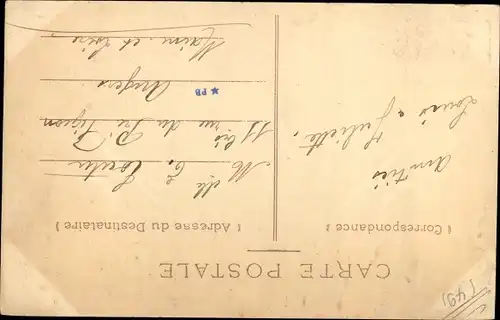 CARTE POSTALE
( Correspondance )
( Adresse du Destinataire )
Amitiés
Juliette.
Louis &
Melle
11 bis rue du Pré Pigeon
Angers
Maine et Loire
* PB
(49)